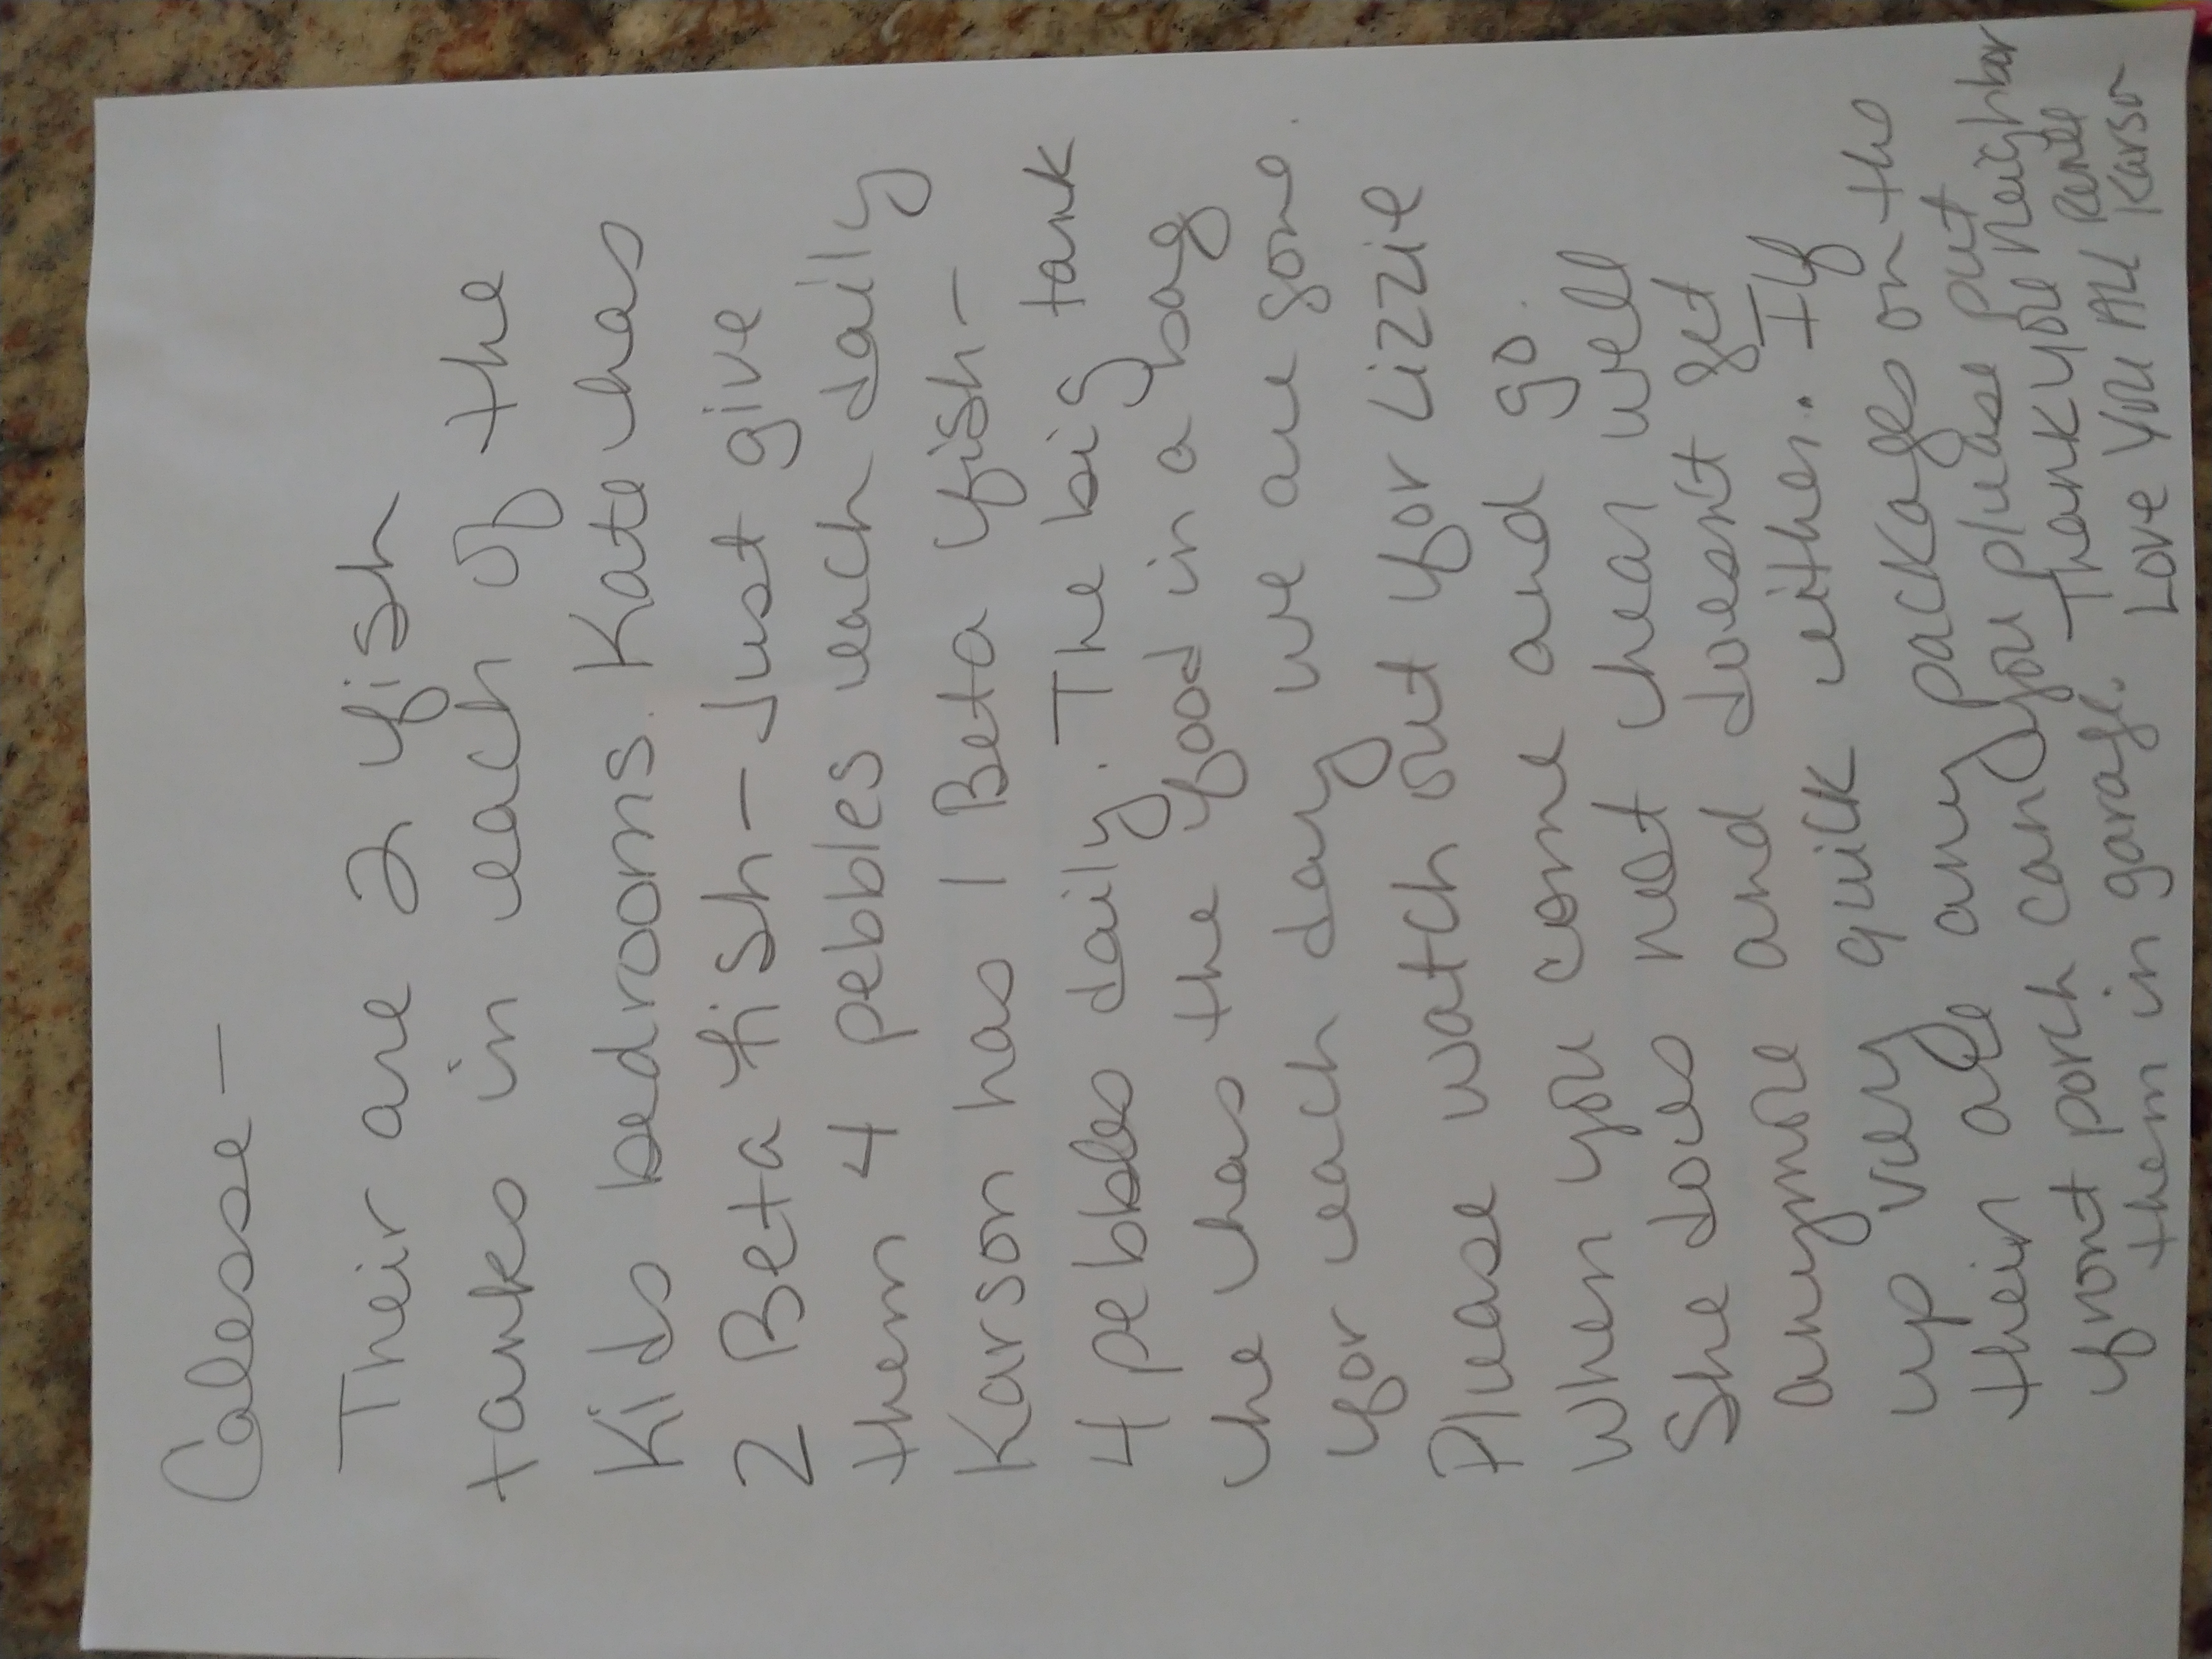 Calese -
Their are 2 fish
tanks in each of the
Kids bedrooms. Kate has
2 Beta fish - Just give
them 4 pebbles each daily
Karson has 1 Beta fish -
4 pebbles daily. The big tank
he has the food in a bag
for each day we are gone.
Please watch out for Lizzie
when you come and go.
She does not hear well
anymore and doesnt get
up very quick either.. If
their are any packages on the
front porch can you please put
them in garage. Thank you neighbor
Love you All Karson